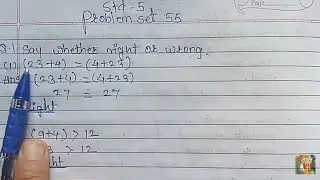 Std - 5
Problem set 55
Q.1 Say whether right or wrong.
(1) (23+4) = (4+23)
Ans (23+4) = (4+23)
27 = 27
Right
(9+4) > 12
> 12